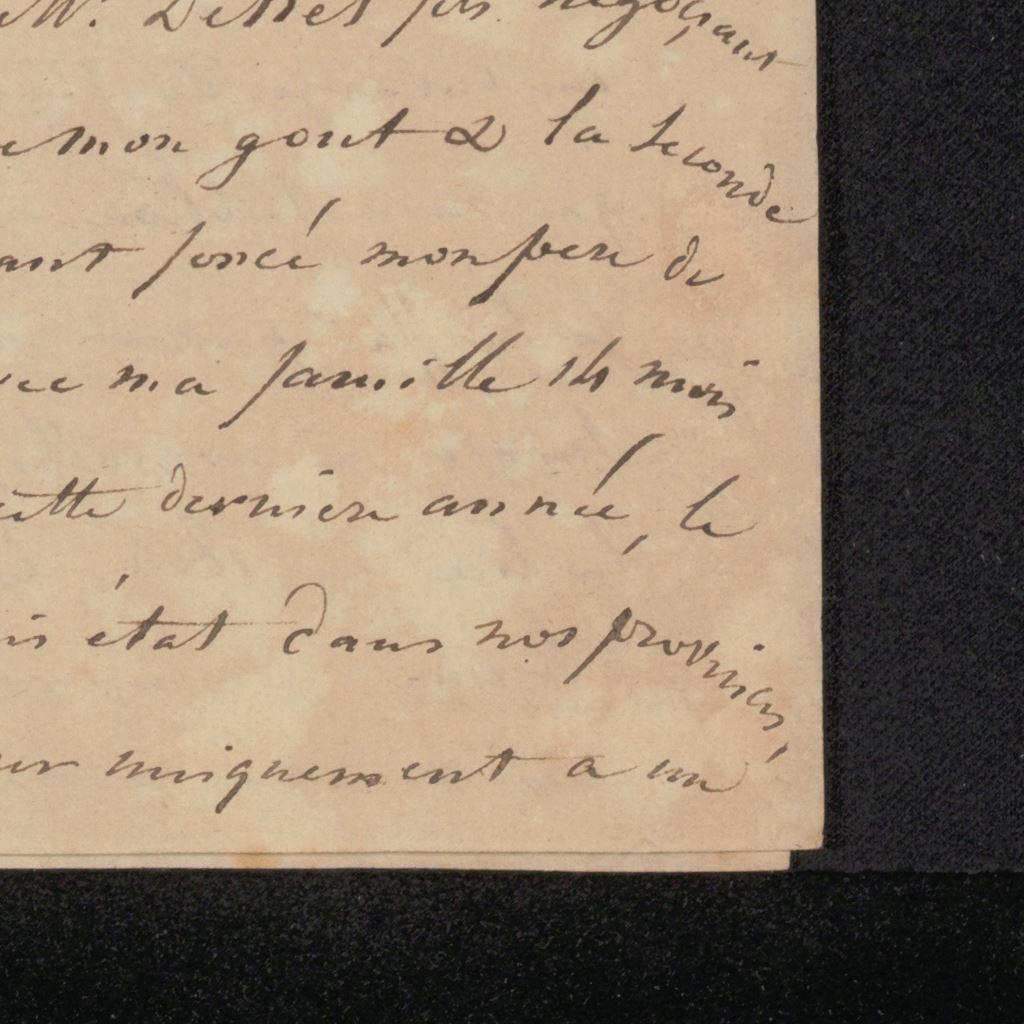 Mr. Dettel fils négoçiant
mon gout & la seconde
ant forcé mon pere de
ma famille 14 mois
cette derniere année, le
état dans nos provinces,
uniquement a un